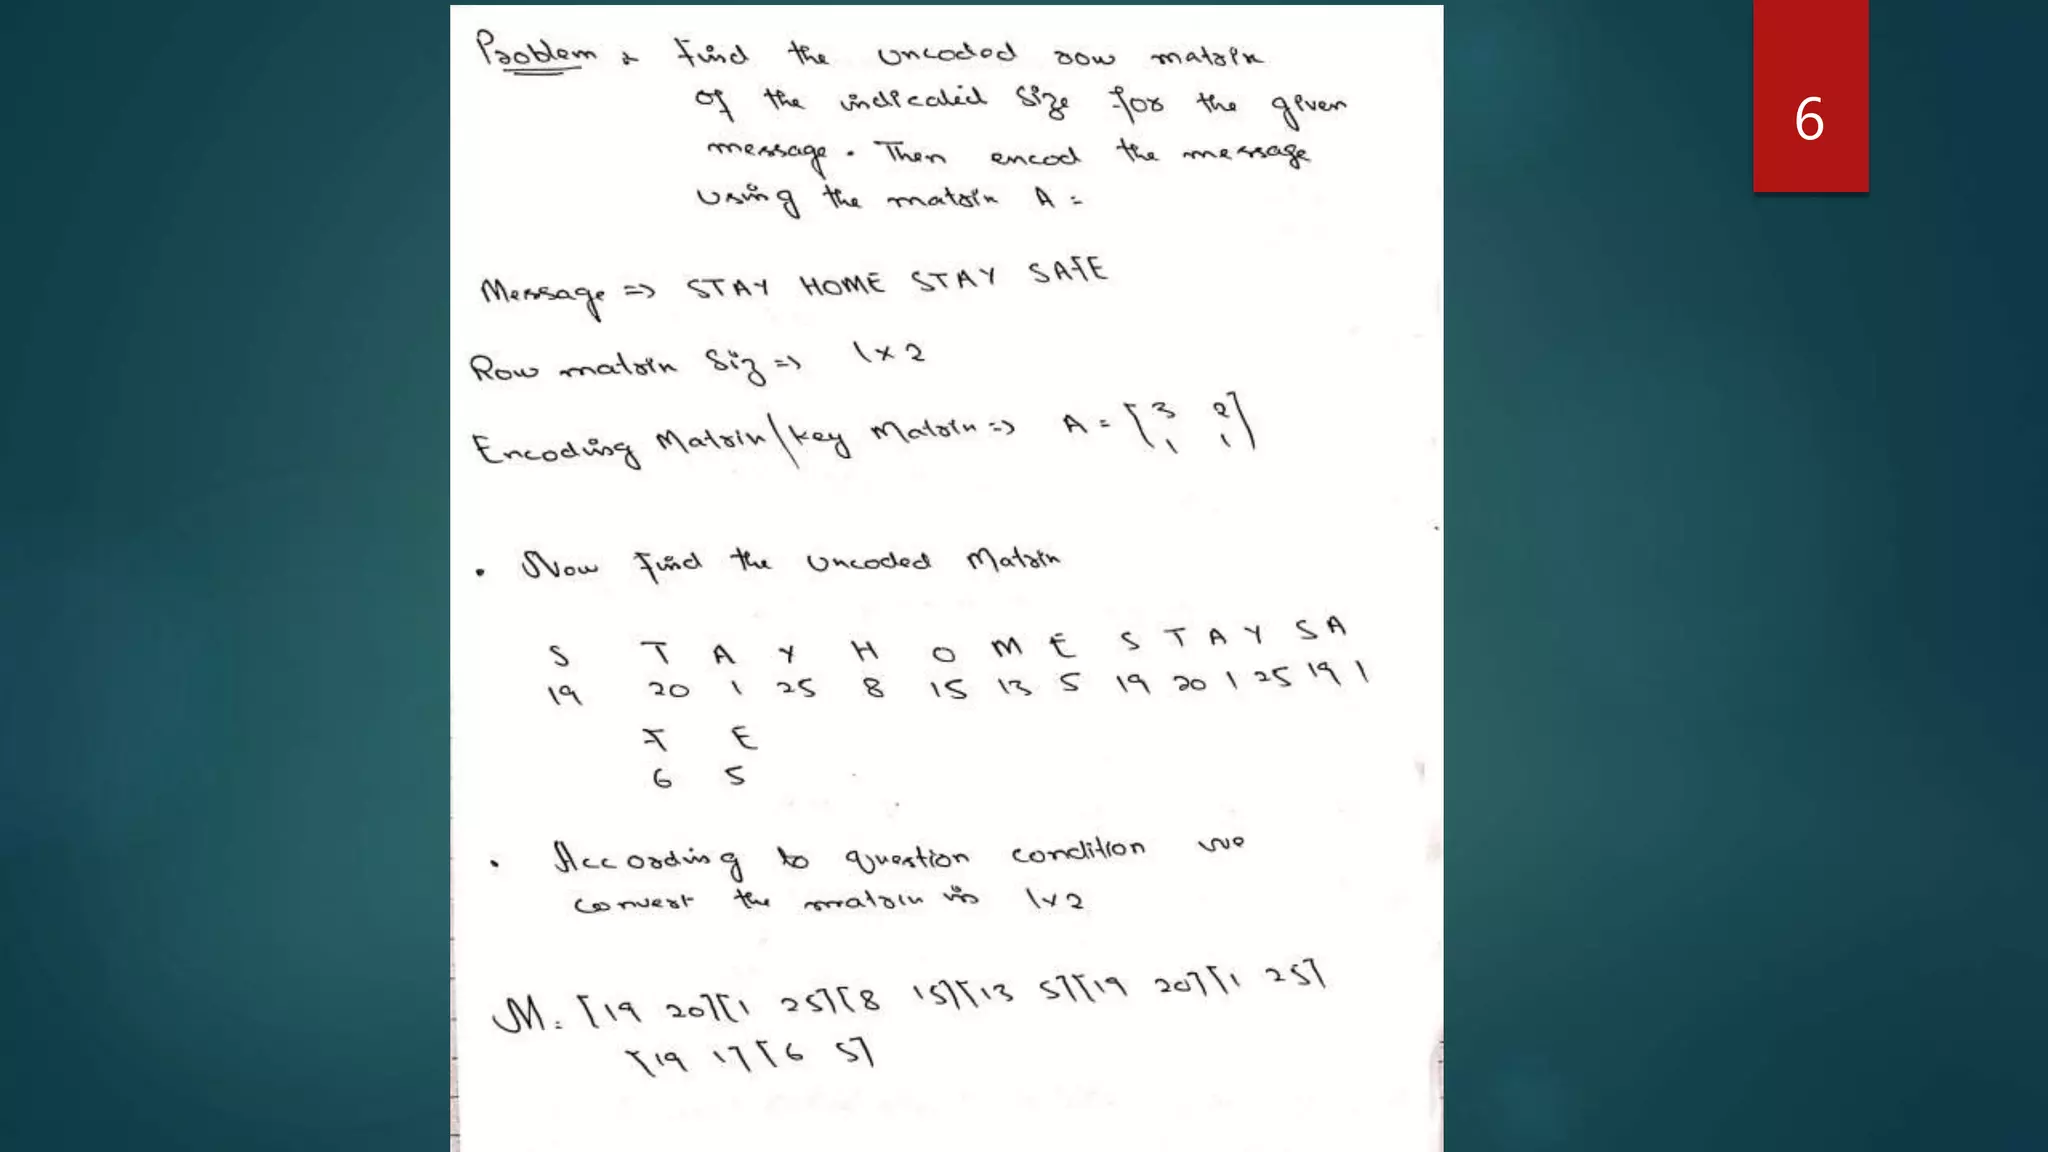 Problem : Find the uncoded row matrix
of the indicated size for the given
message. Then encod the message
using the matrix A =
6
Message => STAY HOME STAY SAFE
Row matrix siz => 1x2
Encoding Matrix/key Matrix => A = [3 2
1 1]
• Now find the uncoded Matrix
S T A Y H O M E S T A Y S A
19 20 1 25 8 15 13 5 19 20 1 25 19 1
F E
6 5
• According to question condition we
convert the matrix in 1x2
M = [19 20][1 25][8 15][13 5][19 20][1 25]
[19 1][6 5]